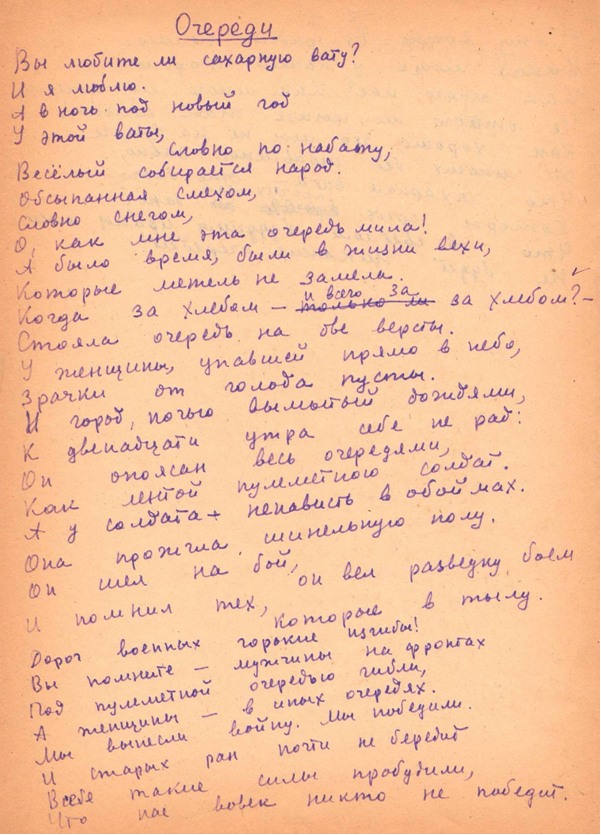 Очереди
Вы любите ли сахарную вату?
И я люблю.
А в ночь под новый год
У этой ваты,
словно по набату,
Весёлый собирается народ.
Обсыпанная смехом,
Словно снегом,
О, как мне эта очередь мила!
А было время, были в жизни вехи,
Которые метель не замела.
и всего за
Когда за хлебом – только ли за хлебом? –
Стояла очередь на две версты.
У женщины, упавшей прямо в небо,
Зрачки от голода пусты.
И город, ночью вымытый дождями,
К двенадцати утра себе не рад:
Он опоясан весь очередями,
Как лентой пулеметною солдат.
А у солдата ненависть в обоймах.
Она прожгла шинельную полу.
Он шел на бой,
он вел разведку боем
И помнил тех,
которые в тылу.
Дорог военных горькие изгибы!
Вы помните – мужчины на фронтах
Под пулеметной очередью гибли,
А женщины – в иных очередях.
Мы вынесли войну. Мы победили.
И старых ран почти не бередит
В себе такие силы пробудили,
Что нас вовек никто не победит.